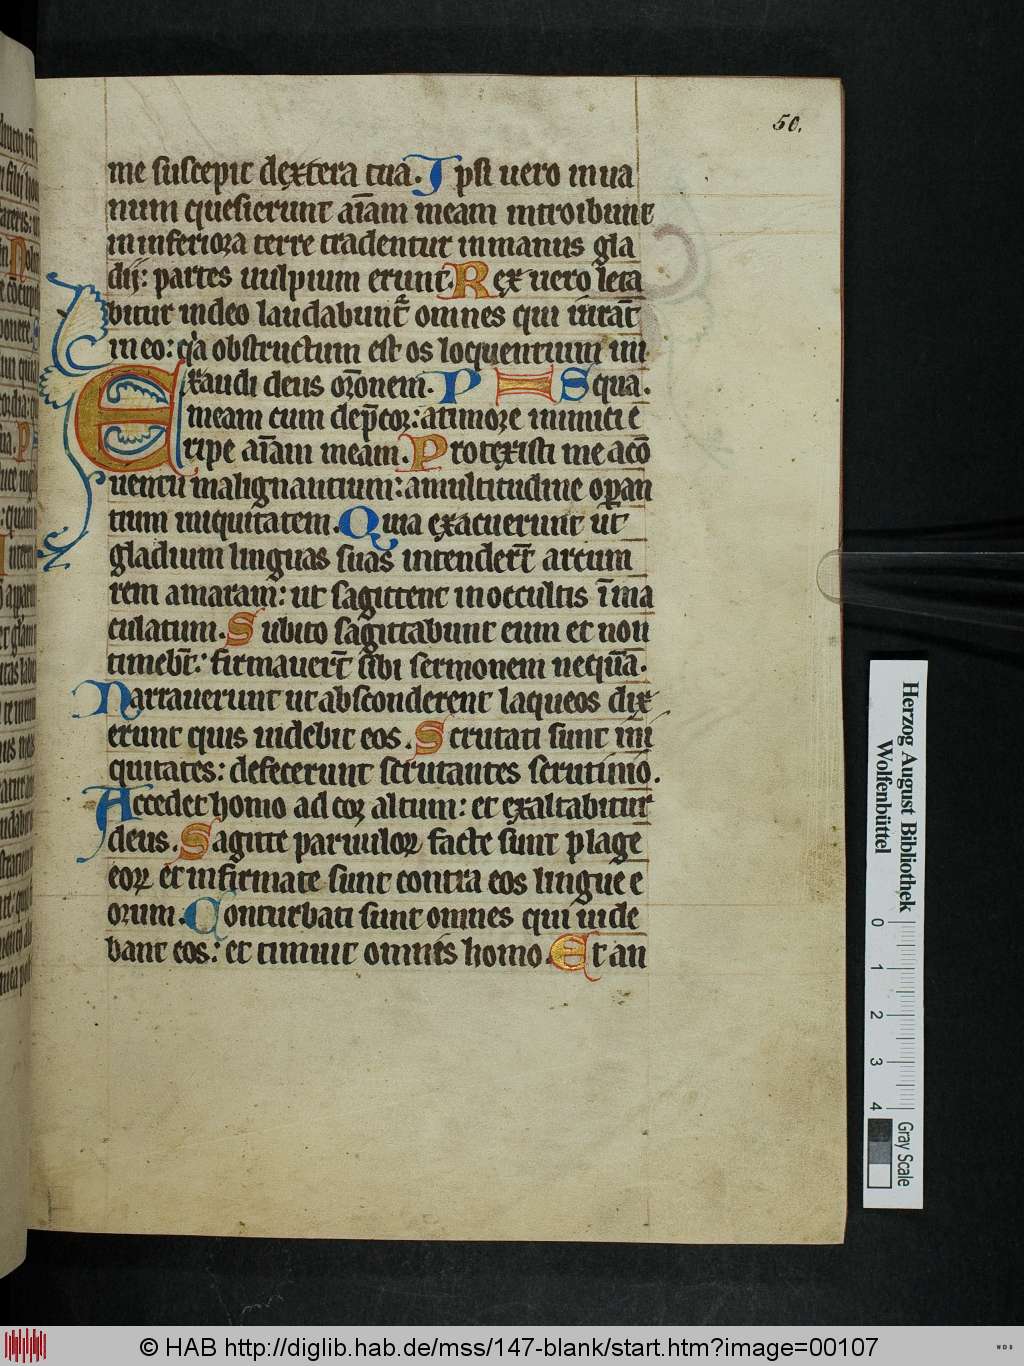 50.
me suscepit dextera tua. Ipsi uero inua
num quesierunt aīam meam introibunt
in inferiora terre tradentur inmanus gla
dij: partes uulpium erunt. Rex uero leta
bitur indeo laudabunt omnes qui iurāt
in eo: qa obstructum est os loquentium ini
Exaudi deus orōnem. P S qua.
meam cum dep̄cor: atimore inimici e
ripe aīam meam. Protexisti me acō
uentu malignantium: amultitudine operan
tium iniquitatem. Quia exacuerunt ut
gladium linguas suas intenderūt arcum
rem amaram: ut sagittent inoccultis īma
culatum. Subito sagittabunt eum et non
timebt̄: firmauert̄ sibi sermonem nequā.
Narrauerunt ut absconderent laqueos dix
erunt quis uidebit eos. Scrutati sunt ini
quitates: defecerunt scrutantes scrutinio.
Accedet homo ad cor altum: et exaltabitur
deus. Sagitte paruulorꝝ facte sunt plage
eorꝝ et infirmate sunt contra eos lingue e
orum. Conturbati sunt omnes qui uide
bant eos: et timuit omnis homo. Et an
Herzog August Bibliothek
Wolfenbüttel
0 1 2 3 4
Gray Scale
© HAB http://diglib.hab.de/mss/147-blank/start.htm?image=00107